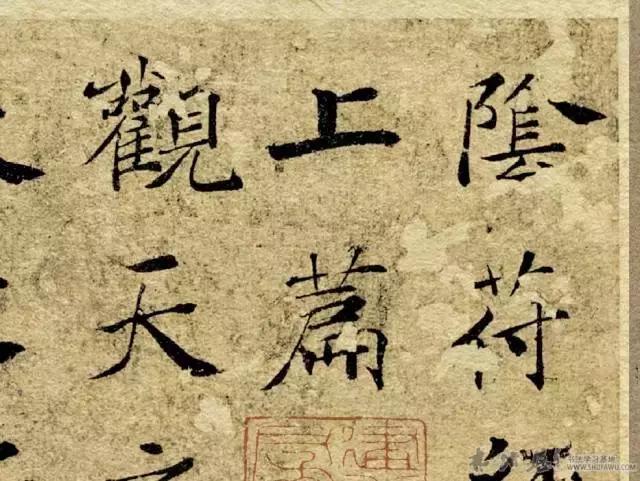 陰符
上篇
觀天之
书法学习基地
WWW.SHUFAWU.COM